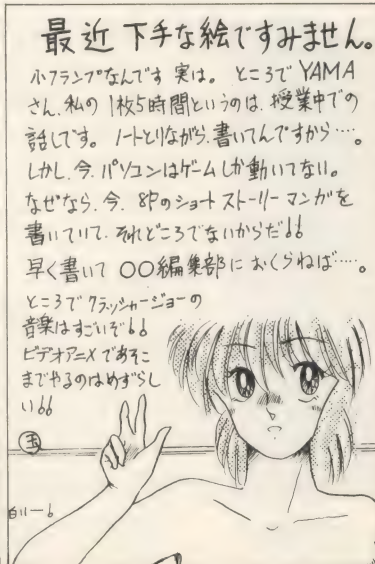 最近下手な絵ですみません。
小フランプなんです 実は。ところで YAMA
さん、私の1枚5時間というのは、授業中での
話しです。ノートとりながら、書いてんですから‥‥。
しかし、今、パソコンはゲームしか動いてない。
なぜなら、今、8Pのショートストーリーマンガを
書いていて、それどころでないからだ!!
早く書いて ○○編集部に おくらねば‥‥。
ところで クラッシャージョーの
音楽はすごいぞ!!
ビデオアニメであそこ
までやるのはめずらし
い!!
玉